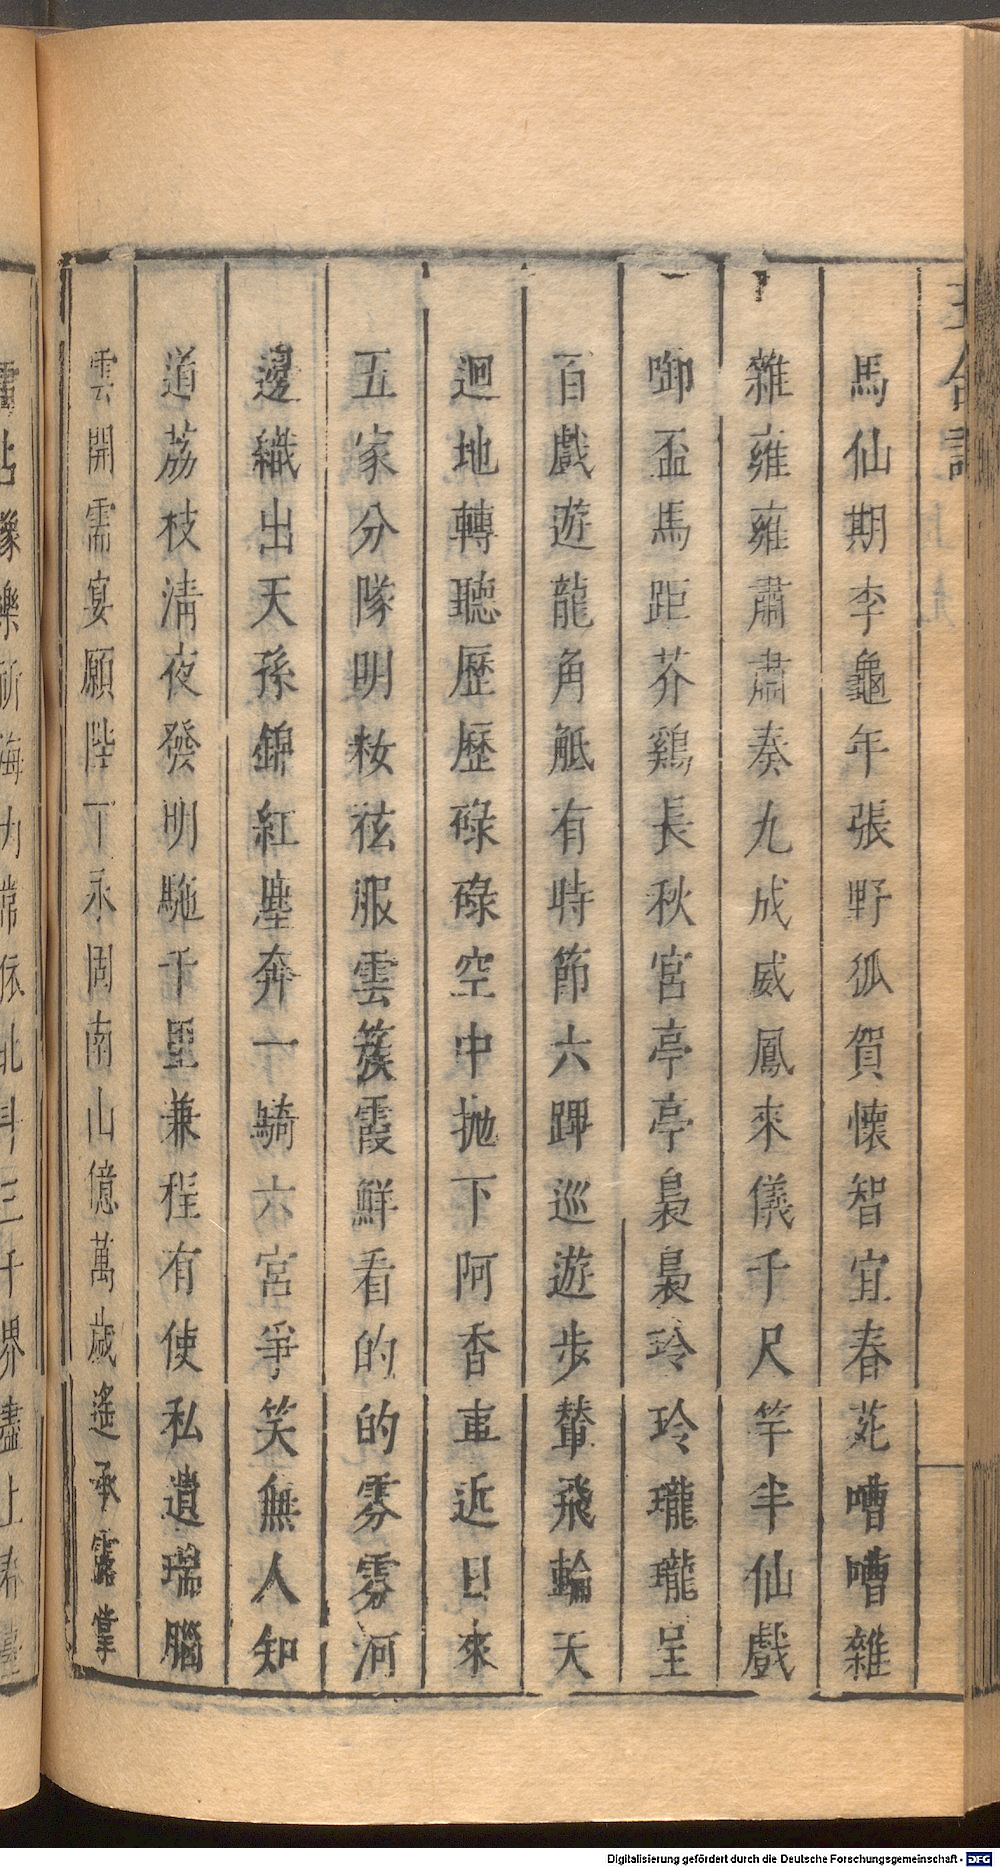 馬仙期李龜年張野狐賀懷智宜春苑嘈嘈雜
雜雍雍肅肅奏九成威鳳來儀千尺竿半仙戲
啣盃馬距芥鷄長秋宮亭亭裊裊玲玲瓏瓏呈
百戲遊龍角觝有時節六踭巡遊步輦飛輪天
迴地轉聽歷歷碌碌空中拋下阿香車近日來
五家分隊明妝袨服雲簇霞鮮看的的雰雰河
邊織出天孫錦紅塵奔一騎六宮爭笑無人知
道荔枝清夜發明駞千里兼程有使私遺瑞腦
雲開需宴願陛下永固南山億萬歲遙承露掌
Digitalisierung gefördert durch die Deutsche Forschungsgemeinschaft - DFG